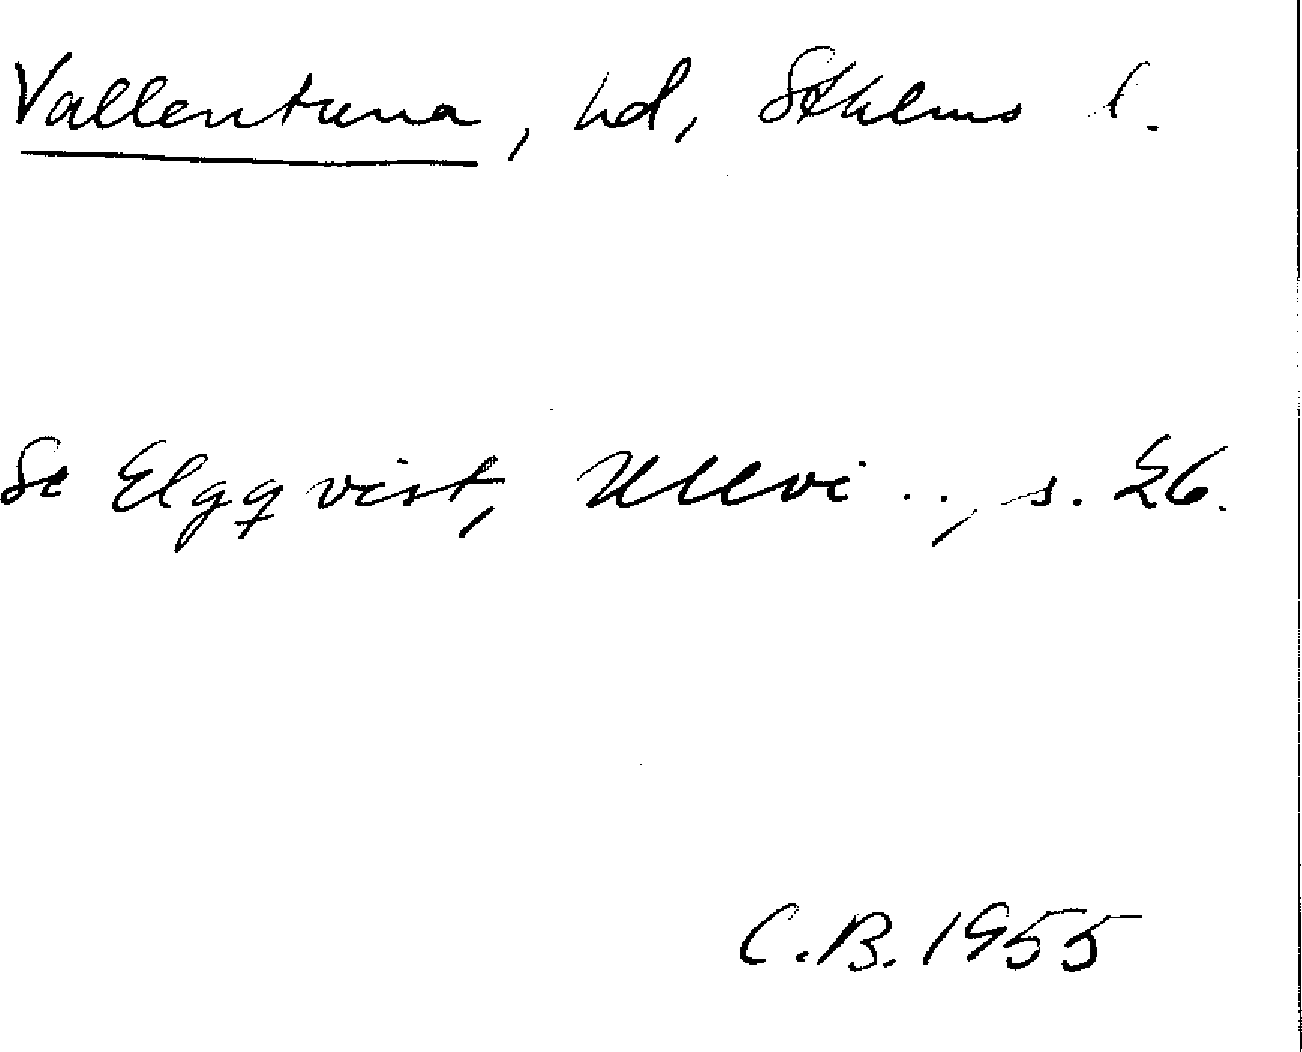 Vallentuna, hd, Sthlms l.
Se Elgqvist, Ullvi .., s. 26.
C.B. 1955